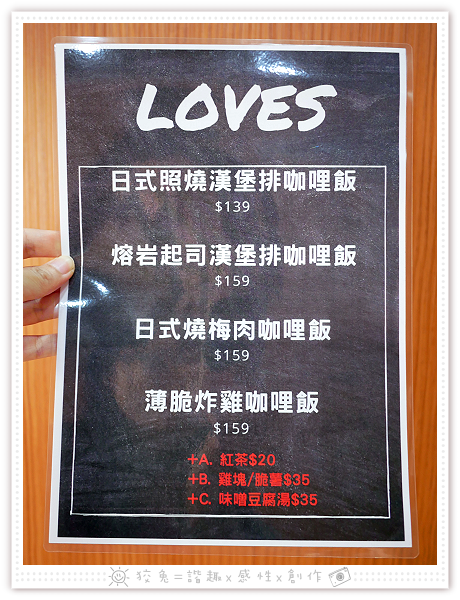 LOVES
日式照燒漢堡排咖哩飯
$139
熔岩起司漢堡排咖哩飯
$159
日式燒梅肉咖哩飯
$159
薄脆炸雞咖哩飯
$159
+A. 紅茶$20
+B. 雞塊/脆薯$35
+C. 味噌豆腐湯$35
狡兔=諧趣x感性x創作